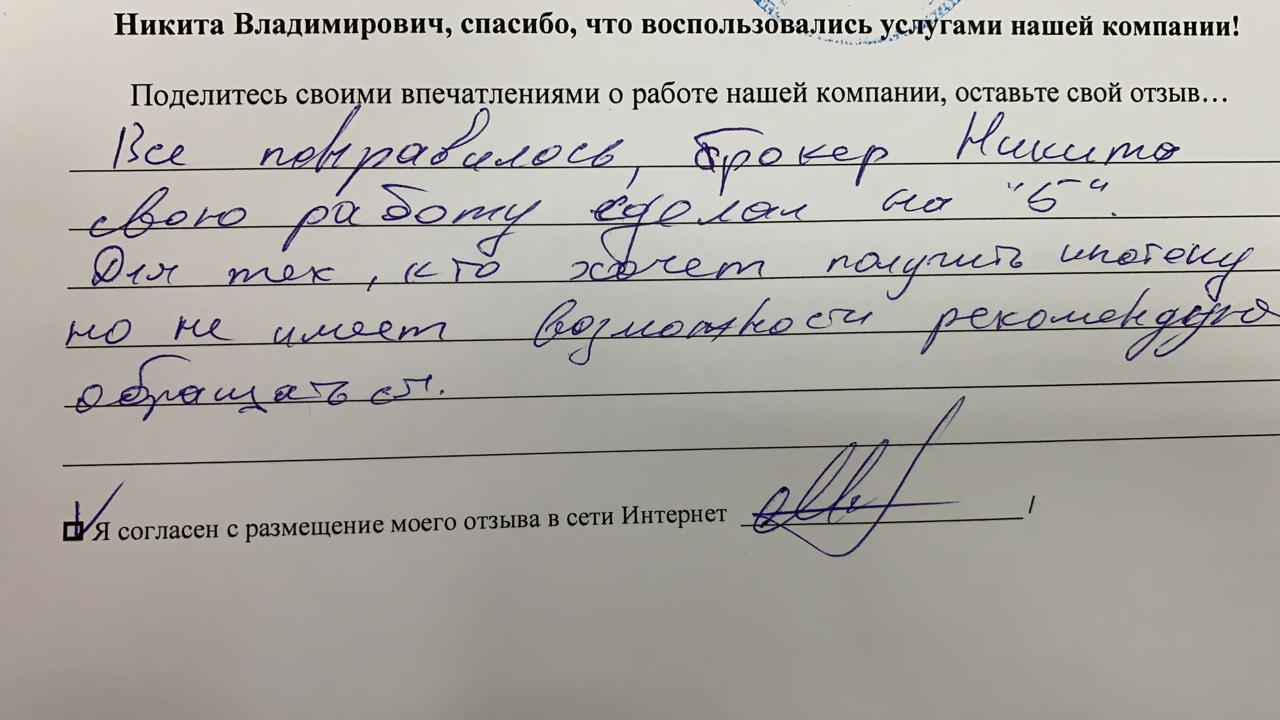 Никита Владимирович, спасибо, что воспользовались услугами нашей компании!
Поделитесь своими впечатлениями о работе нашей компании, оставьте свой отзыв…
Все понравилось, брокер Никита
свою работу сделал на "5".
Для тех, кто хочет получить ипотеку
но не имеет возможности рекомендую
обращаться.
Я согласен с размещение моего отзыва в сети Интернет /